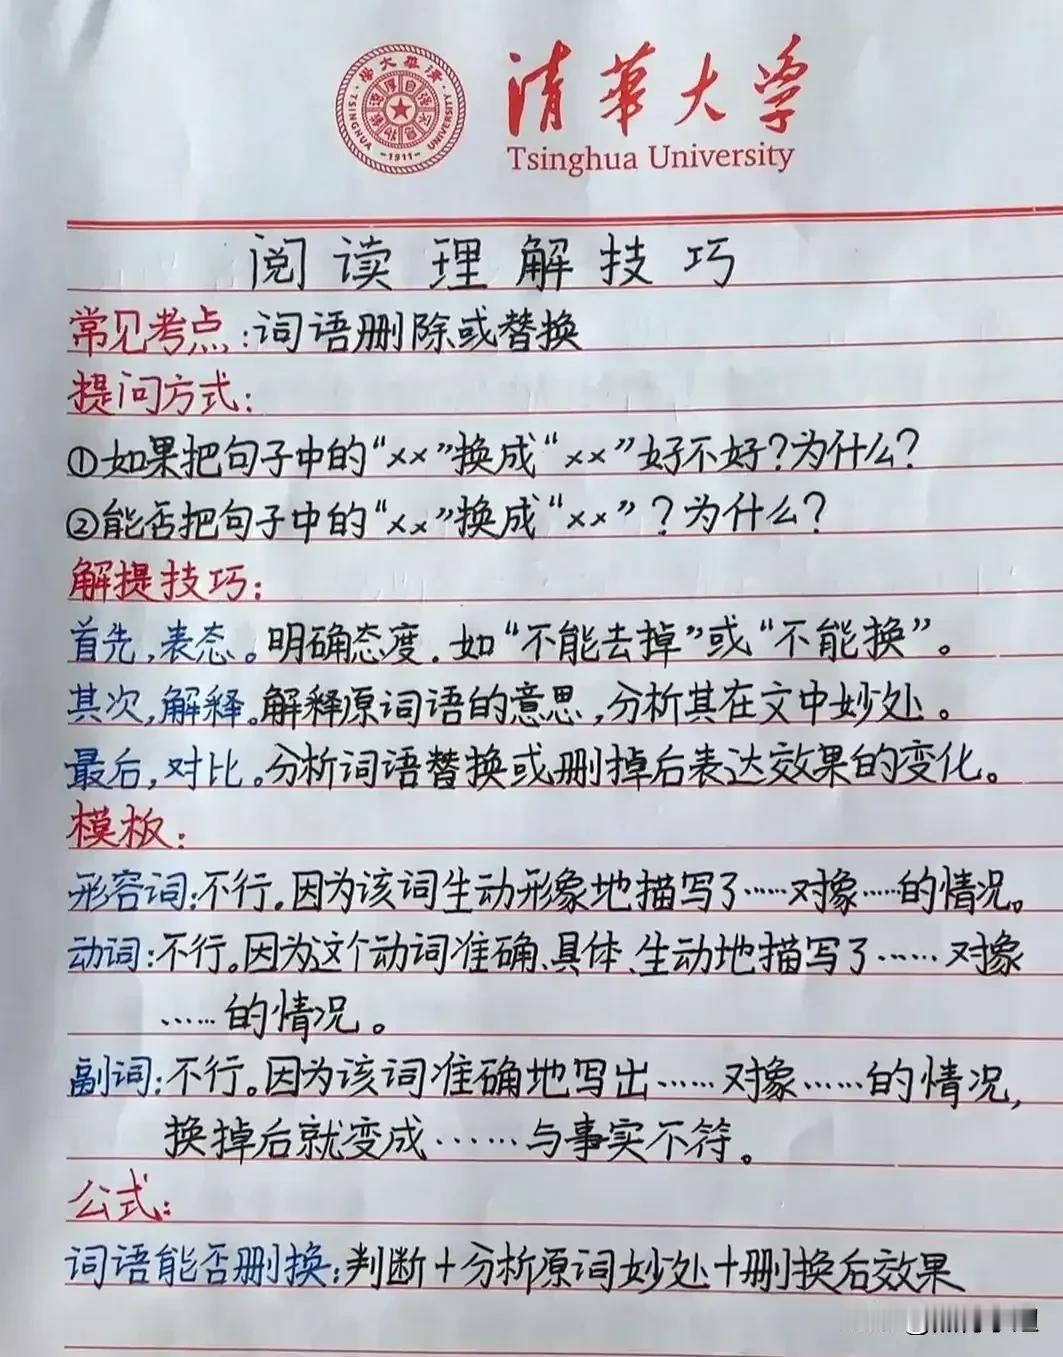 清華大学
Tsinghua University
TSINGHUA UNIVERSITY
-1911-
阅读理解技巧
常见考点:词语删除或替换
提问方式:
①如果把句子中的“××”换成“××”好不好?为什么?
②能否把句子中的“××”换成“××”?为什么?
解提技巧:
首先,表态。明确态度.如“不能去掉”或“不能换”。
其次,解释。解释原词语的意思,分析其在文中妙处。
最后,对比。分析词语替换或删掉后表达效果的变化。
模板:
形容词:不行。因为该词生动形象地描写了……对象……的情况。
动词:不行。因为这个动词准确、具体、生动地描写了……对象
……的情况。
副词:不行。因为该词准确地写出……对象……的情况,
换掉后就变成……与事实不符。
公式:
词语能否删换:判断+分析原词妙处+删换后效果